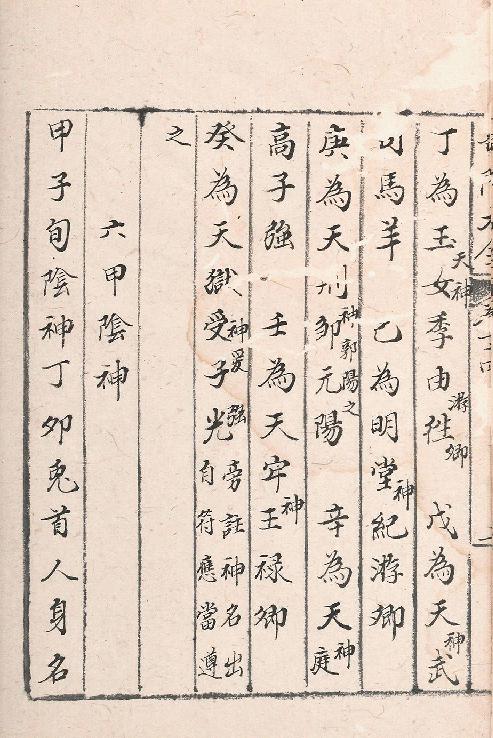 丁為玉天神女季由徃游卿 戊為天神武
司馬羊 乙為明堂神紀游卿
庚為天刑神鄒元陽郭陽之 辛為天庭神
高子強 壬為天牢神王禄卿
癸為天獄神受子光爰強旁註神名出自符應當遵
之
六甲陰神
甲子旬陰神丁夘兎首人身名